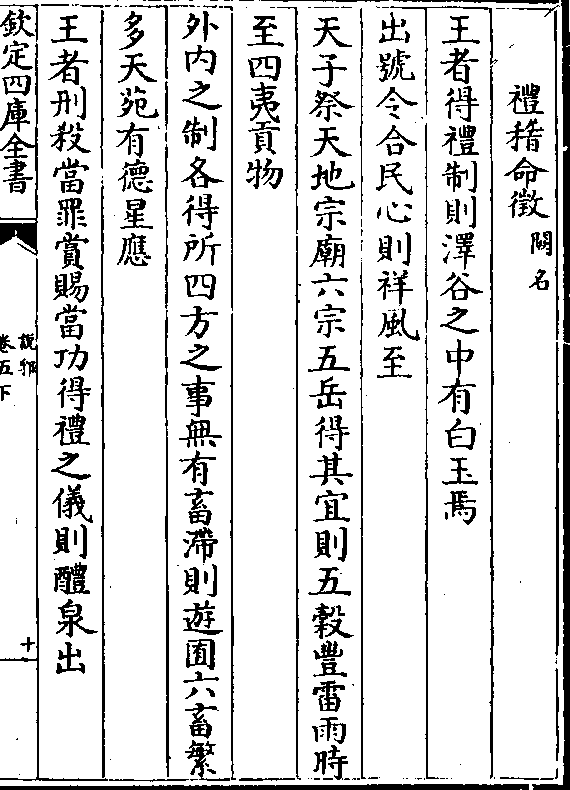 禮稽命徵 闕名
王者得禮制則澤谷之中有白玉焉
出號令合民心則祥風至
天子祭天地宗廟六宗五岳得其宜則五穀豐雷雨時
至四夷貢物
外內之制各得所四方之事無有畜滯則遊囿六畜繁
多天苑有德星應
王者刑殺當罪賞賜當功得禮之儀則醴泉出
欽定四庫全書
說郛
卷五下
十